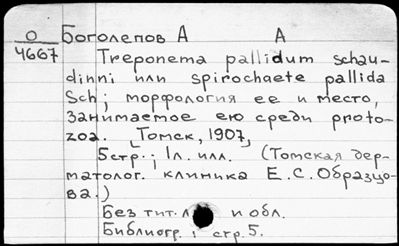 О
4667
Боголепов А А
Treponema pallidum schau-
dinni или spirochaete pallida
Sch; морфология ее и место,
занимаемое ею среди proto-
zoa. [Томск, 1907,
5стр.; 1л. илл. (Томская дер-
матолог. клиника Е.С.Образцо-
ва.)
Без тит. л и обл.
Библиогр.: стр. 5.